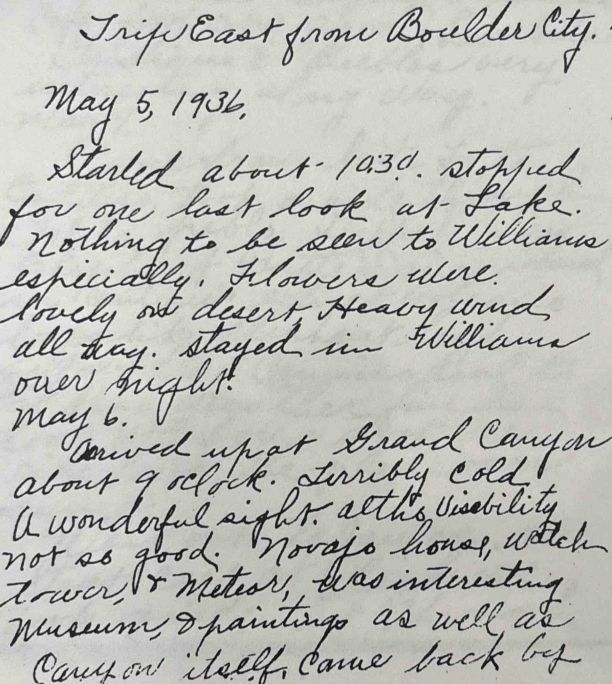 Trip East from Boulder City.
May 5, 1936.
Started about 10:30. stopped
for one last look at Lake.
Nothing to be seen to Williams
especially. Flowers were
lovely on desert. Heavy wind
all way. stayed in Williams
over night.
May 6.
Arrived up at Grand Canyon
about 9 oclock. Terribly cold
A wonderful sight. altho Visibility
not so good. Novajo house, watch
tower, & Meteor, was interesting
Museum, & paintings as well as
Canyon itself. Came back by